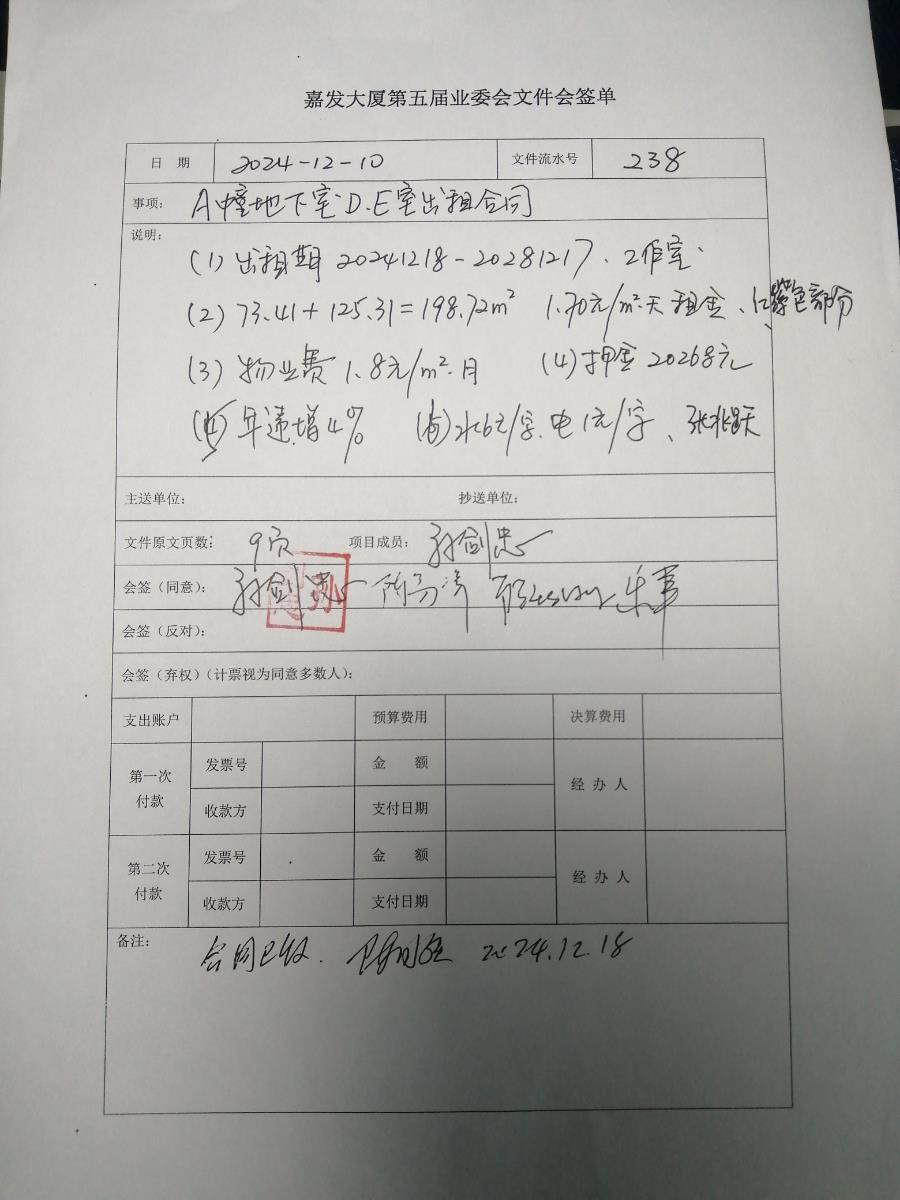 嘉发大厦第五届业委会文件会签单
日 期 2024-12-10 文件流水号 238
事项: A幢地下室D.E室出租合同
说明:
(1) 出租期 20241218-20281217、工作室
(2) 73.41+125.31=198.72m² 1.70元/m².天 租金、
(3) 物业费 1.8元/m².月 (4) 押金 20268元
年递增4% 水6元/字、电1元/字、张兆跃
主送单位: 抄送单位:
文件原文页数: 9页 项目成员: 孙剑忠
会签(同意): 孙剑忠 乐军
会签(反对):
会签(弃权)(计票视为同意多数人):
支出账户 预算费用 决算费用
第一次付款 发票号 金 额 经办人
收款方 支付日期
第二次付款 发票号 金 额 经办人
收款方 支付日期
备注: 合同已收. 2024.12.18